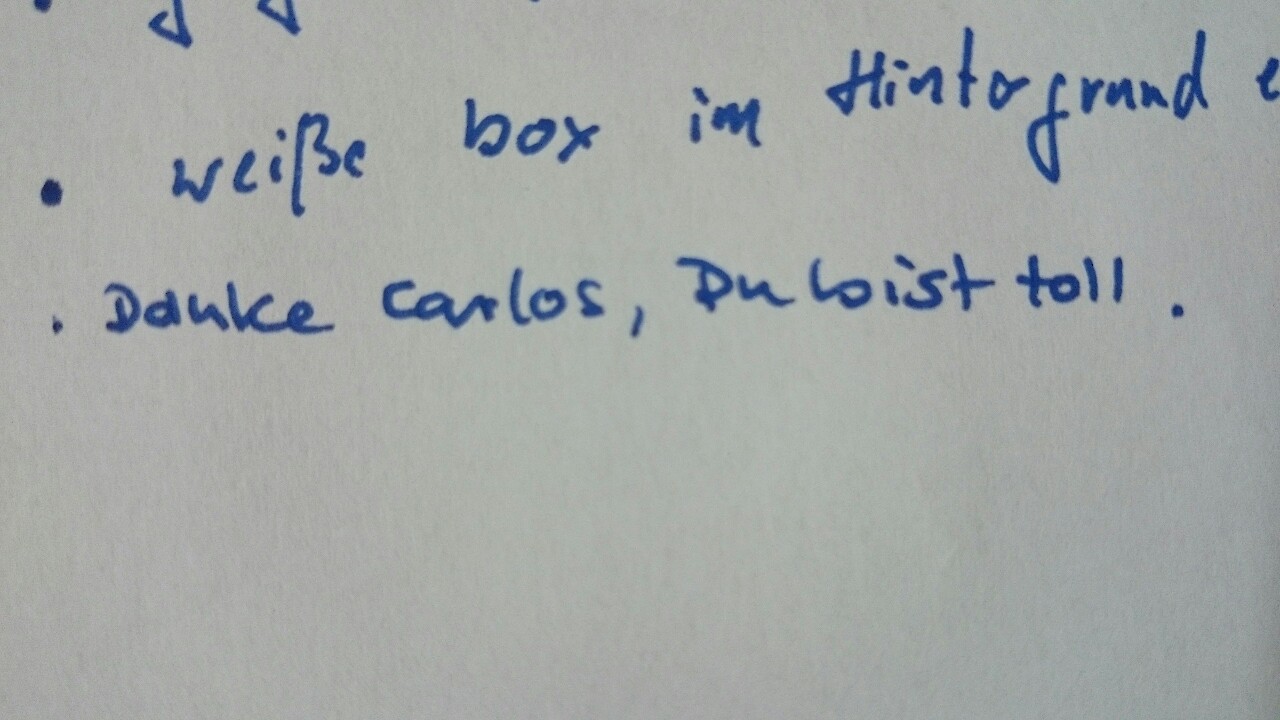 • weiße box im Hintergrund
. Danke Carlos, Du bist toll.